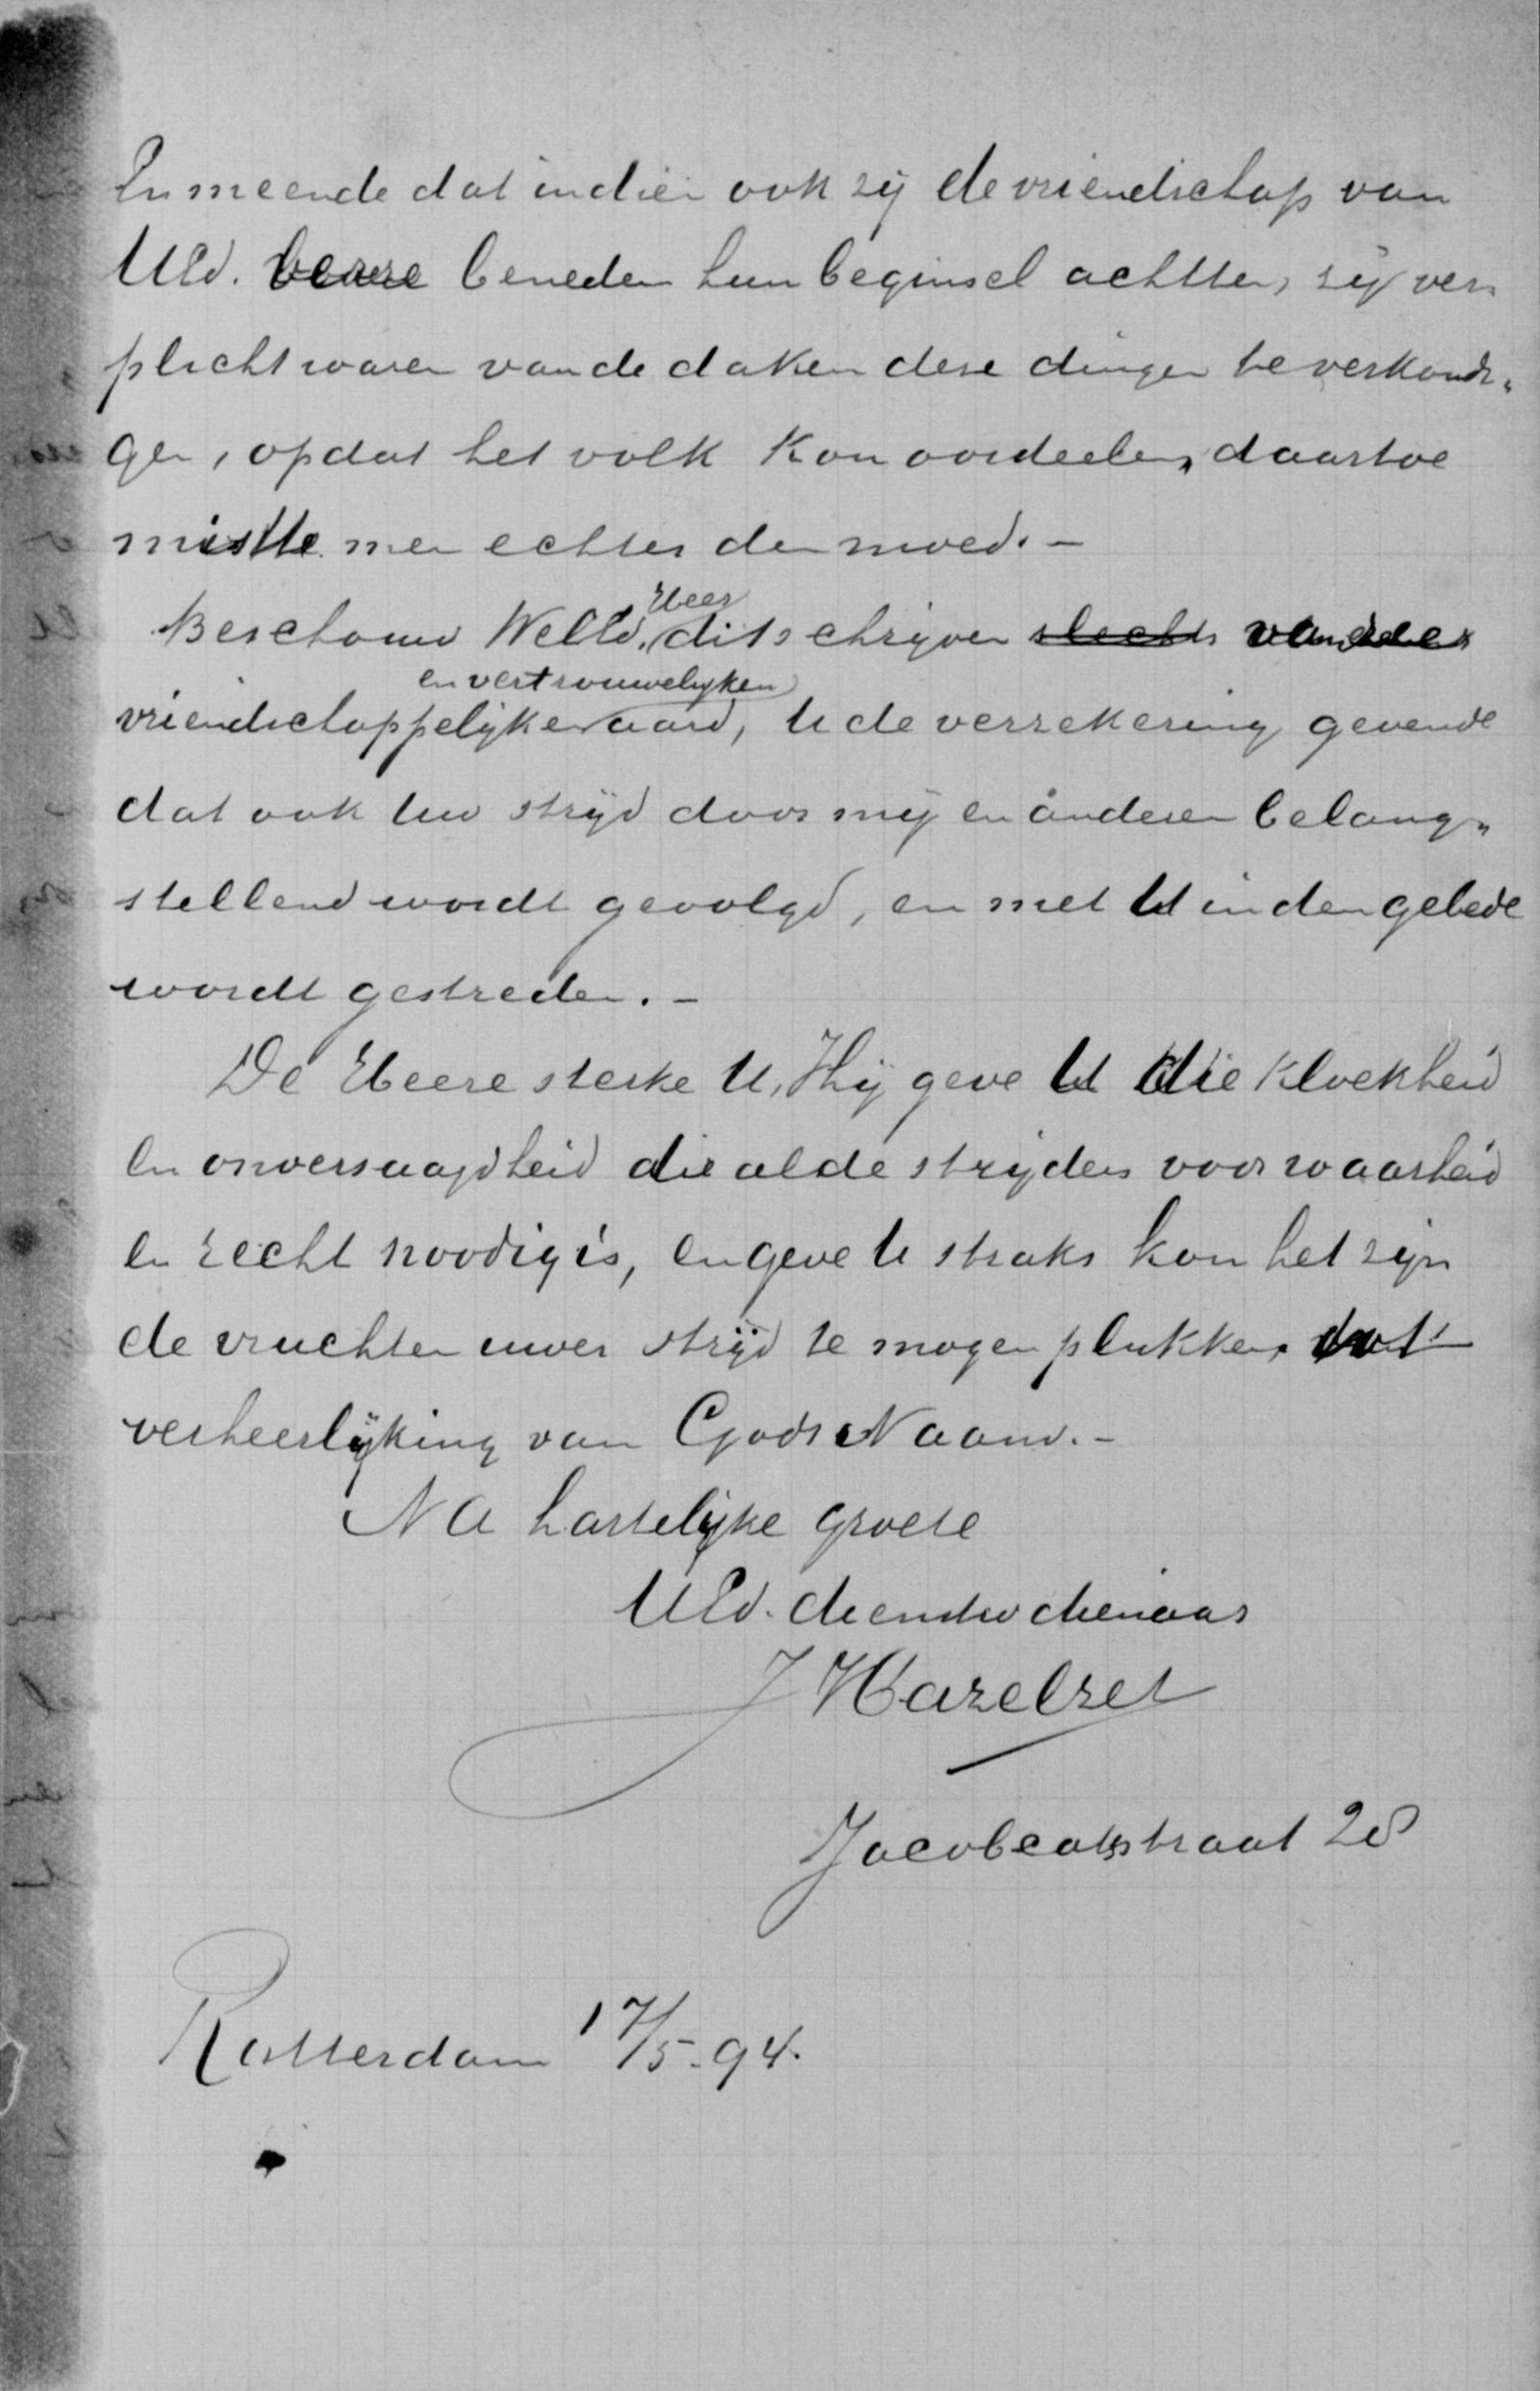 En meende dat indien ook zij de vriendschap van
UEd. beneden hun beginsel achtten, zij ver-
plicht waren van de daken deze dingen te verkondi-
gen, opdat het volk kon oordeelen, daartoe
mistte men echter den moed. -
Heer
Beschouw WelEd. dit schrijven slechts van
en vertrouwelijken
vriendschappelijken aard, U de verzekering gevende
dat ook uw strijd door mij en anderen belang-
stellend wordt gevolgd, en met U in den gebede
wordt gestreden. -
De Heere sterke U, Hij geve U die kloekheid
en onversaagdheid die al de strijders voor waarheid
en recht noodig is, en geve U straks kon het zijn
de vruchten uwer strijd te mogen plukken, tot
verheerlijking van Gods Naam. -
Na hartelijke groete
UEd. dienstw dienaar
J Hazelzet
Jacobcatsstraat 28
Rotterdam 17/5-94.